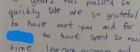 years has passed so
quickly. We are so grateful
to have met you
to have spent so much
time